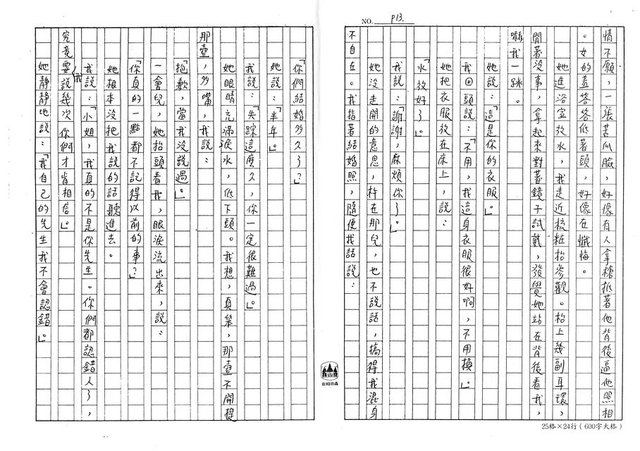 NO. P13.
情不願，一張苦瓜臉，好像有人拿槍抵著他背後逼他照相
。女的直答答低著頭，好像在懺悔。
她進浴室放水，我走近梳粧抬參觀。抬上幾副耳環，
閒著沒事，拿起來對著鏡子試戴，發覺她站在背後看我，
嚇我一跳。
她說：「這是你的衣服。」
我回頭說：「不用，我這身衣服很好啊，不用換。」
她把衣服放在床上，說：
「水放好了。」
我說：「謝謝，麻煩你了。」
她沒走開的意思，杵在那兒，也不說話，搞得我渾身
不自在。我指著結婚照，隨便找話說：
「你們結婚多久了？」
她說：「半年。」
我說：「失踪這麼久，你一定很難過。」
她眼睛充滿淚水，低下頭。我想，真笨，那壺不開提
那壺，多嘴，我說：
「抱歉，當我沒說過。」
一會兒，她抬頭看我，眼淚流出來，說：
「你真的一點都不記得以前的事？」
她根本沒把我說的話聽進去。
我說：「小姐，我真的不是你先生。你們都認錯人了，
究竟要我說幾次你們才肯相信。」
她靜靜地說：「我自己的先生我不會認錯。」
25格×24行（600字大格）